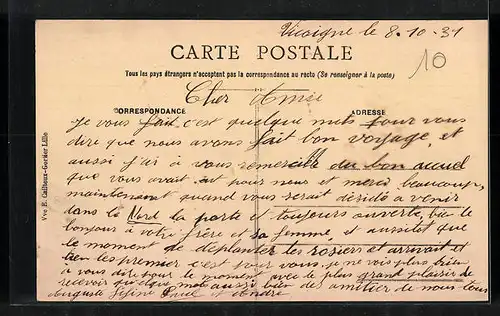 Vicoigne le 8-10-31
10
CARTE POSTALE
Tous les pays étrangers n'acceptent pas la correspondance au recto (Se renseigner à la poste)
Cher Amie
CORRESPONDANCE
ADRESSE
Je vous fait c'est quelque mots pour vous
dire que nous avons fait bon voyage, et
aussi j'ai à vous remercié du bon acceuil
que vous avait pour nous et merci beaucoup,
maintenant quand vous serait décidé a venir
dans le Nord la porte et toujours ouverte, bien le
bonjour à votre frère et sa femme, et aussitot que
le moment de déplanter les rosiers et arrivait et
bien les premier c'est pour vous, je ne vois plus bien
a vous dire pour le moment avec le plus grand plaisir de
recevoir quelque mot aussi bien des amitier de nous tous
Auguste et André
Vve E. Cailteux-Gernier Lille